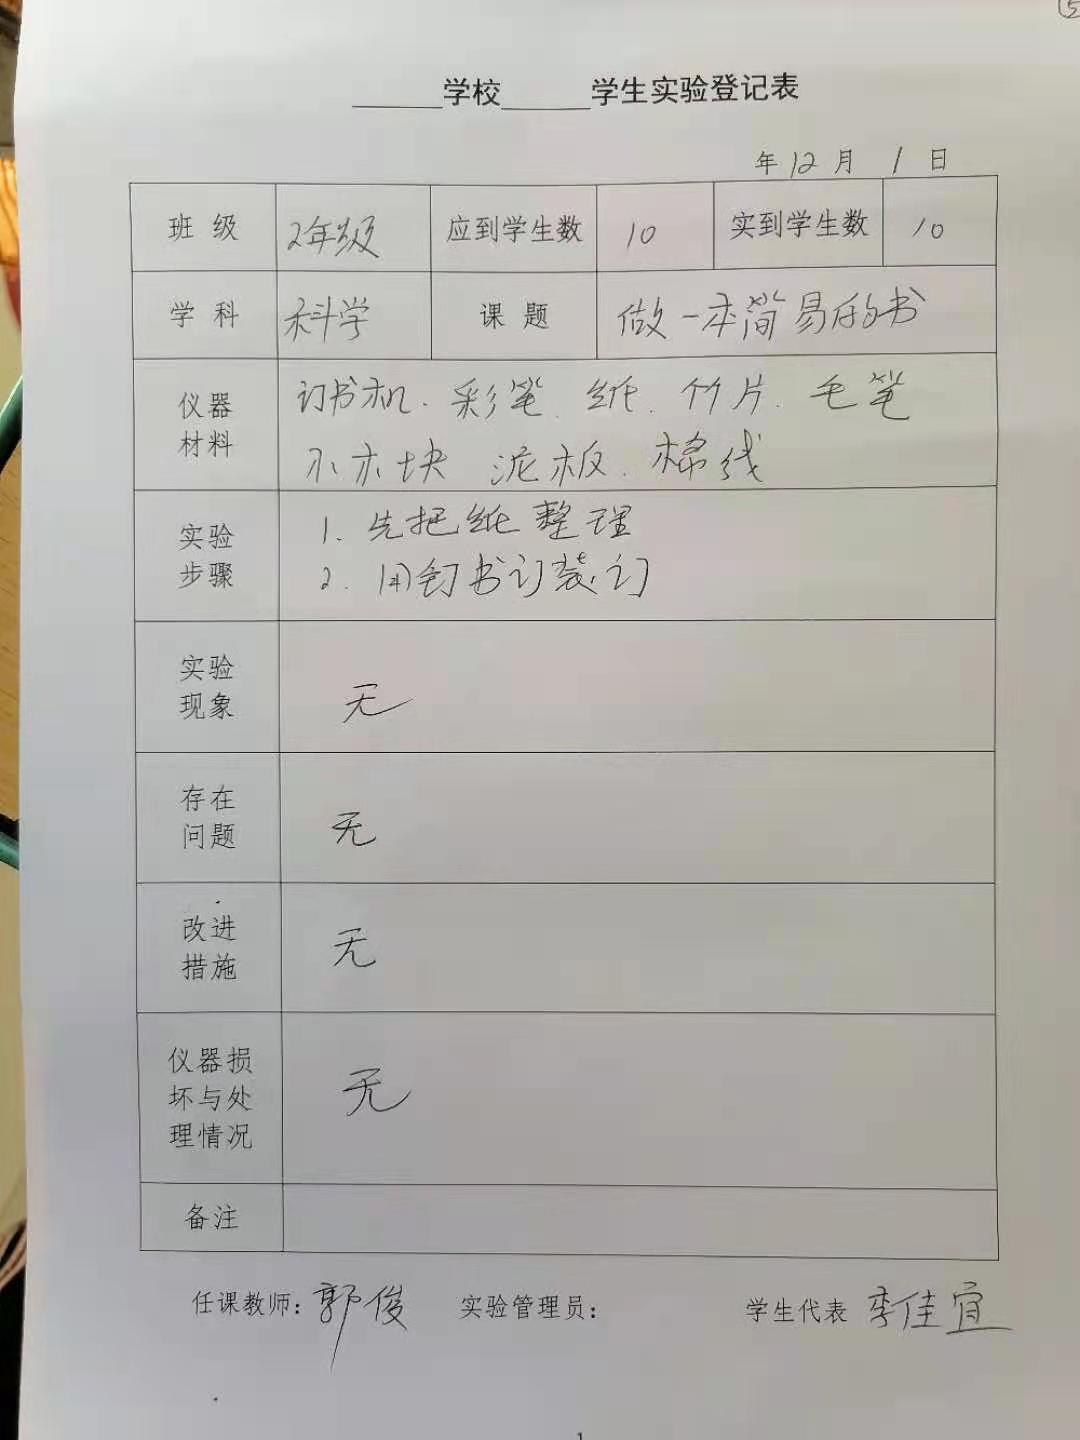 ⑤
______学校______学生实验登记表
年 12 月 1 日
班 级 2年级 应到学生数 10 实到学生数 10
学 科 科学 课 题 做一本简易的书
仪器
材料
订书机、彩笔、纸、竹片、毛笔
小木块 泥板、棉线
实验
步骤
1. 先把纸整理
2. 用钉书订装订
实验
现象
无
存在
问题
无
改进
措施
无
仪器损
坏与处
理情况
无
备注
任课教师：郭俊 实验管理员： 学生代表 李佳宜
1